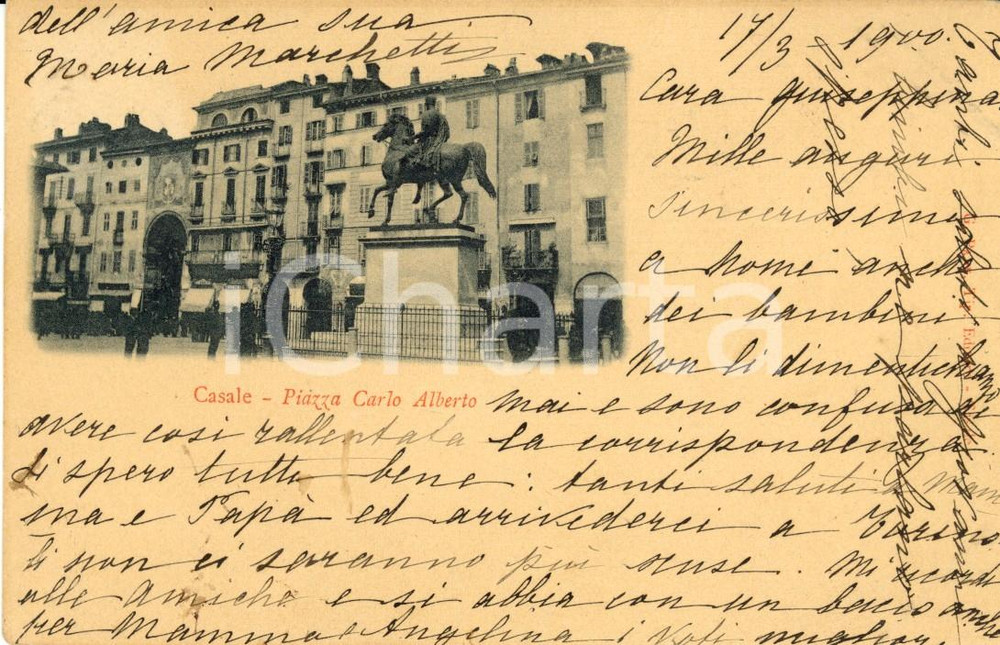 dell'amica sua
Maria Marchetti
17/3 1900.
Cara Giuseppina
Mille auguri
sincerissimi
a nome anche
dei bambini
Non li dimentichiamo
Casale - Piazza Carlo Alberto
mai e sono confusa di
avere così rallentata la corrispondenza.
Li spero tutti bene: tanti saluti a Mam
ma e Papà ed arrivederci a Torino
li non ci saranno più scuse. Mi ricordi
alle Amiche e si abbia con un bacio anche
per Mamma e Angelina i voti migliori
iCharta